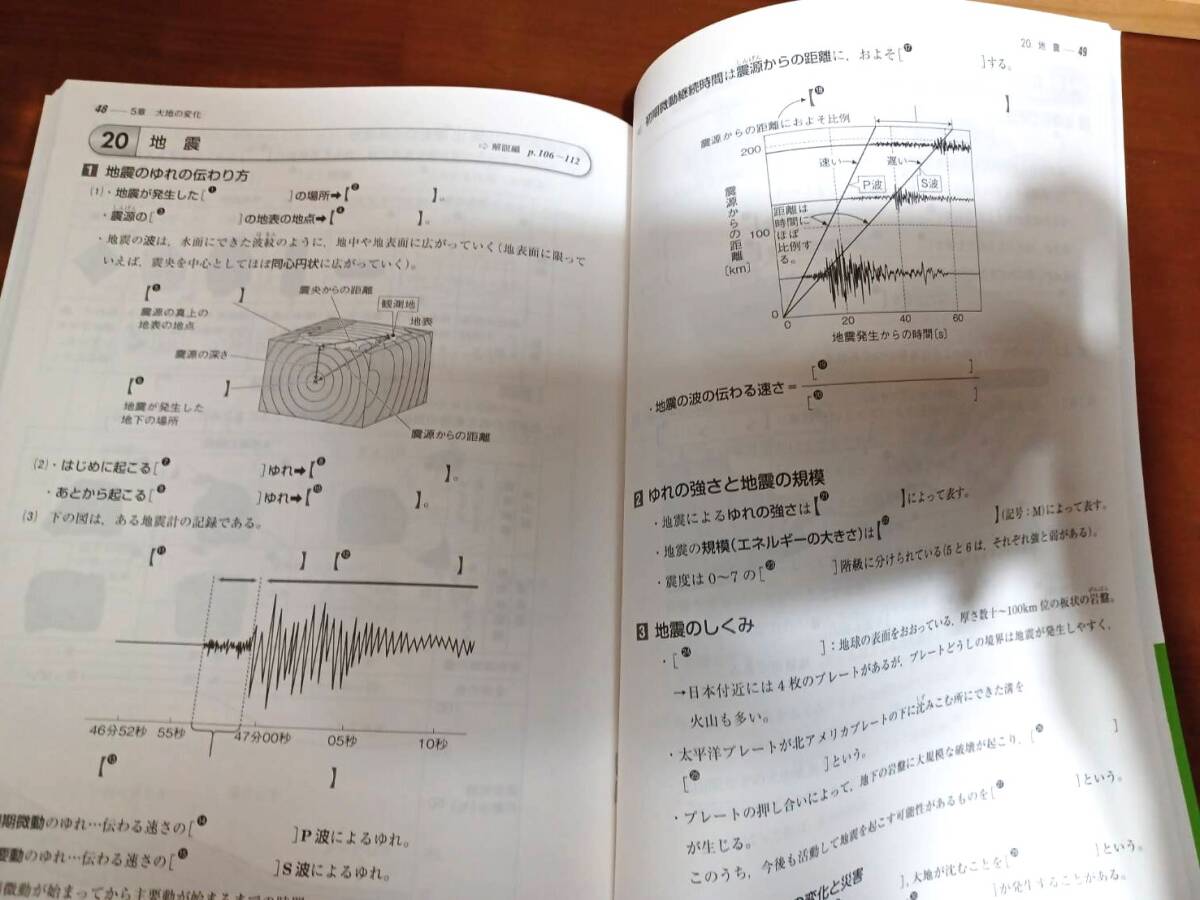 48 ― 5章 大地の変化
20 地 震 ⇨ 解説編 p.106~112
1 地震のゆれの伝わり方
(1)・地震が発生した[❶ ]の場所➡【❷ 】。
・震源の[❸ ]の地表の地点➡【❹ 】。
・地震の波は、水面にできた波紋のように、地中や地表面に広がっていく(地表面に限って
いえば、震央を中心としてほぼ同心円状に広がっていく)。
【❺ 】
震源の真上の
地表の地点
震央からの距離
観測地
地表
震源の深さ
【❻ 】
地震が発生した
地下の場所
震源からの距離
(2)・はじめに起こる[❼ ]ゆれ➡【❽ 】。
・あとから起こる[❾ ]ゆれ➡【❿ 】。
(3) 下の図は、ある地震計の記録である。
【⓫ 】【⓬ 】
46分52秒 55秒 47分00秒 05秒 10秒
【⓭ 】
期微動のゆれ…伝わる速さの[⓮ ]P波によるゆれ。
要動のゆれ…伝わる速さの[⓯ ]S波によるゆれ。
微動が始まってから主要動が始まるまでの時間
20 地 震 ― 49
初期微動継続時間は震源からの距離に、およそ[⓱ ]する。
【⓲ 】
震源からの距離におよそ比例
200
速い
遅い
P波
S波
震源からの距離[km]
距離は
時間に
ほぼ
比例す
る。
100
0
0 20 40 60
地震発生からの時間[s]
・地震の波の伝わる速さ=
[⓳ ]
[⓴ ]
2 ゆれの強さと地震の規模
・地震によるゆれの強さは【㉑ 】によって表す。
・地震の規模(エネルギーの大きさ)は【㉒ 】(記号:M)によって表す。
・震度は0~7の[㉓ ]階級に分けられている(5と6は、それぞれ強と弱がある)。
3 地震のしくみ
・[㉔ ]:地球の表面をおおっている、厚さ数十~100km位の板状の岩盤。
→日本付近には4枚のプレートがあるが、プレートどうしの境界は地震が発生しやすく、
火山も多い。
・太平洋プレートが北アメリカプレートの下に沈みこむ所にできた溝を
[㉕ ]という。
・プレートの押し合いによって、地下の岩盤に大規模な破壊が起こり、[㉖ ]
が生じる。
このうち、今後も活動して地震を起こす可能性があるものを[㉗ ]という。
の変化と災害
], 大地が沈むことを[㉙ ]という。
]が発生することがある。